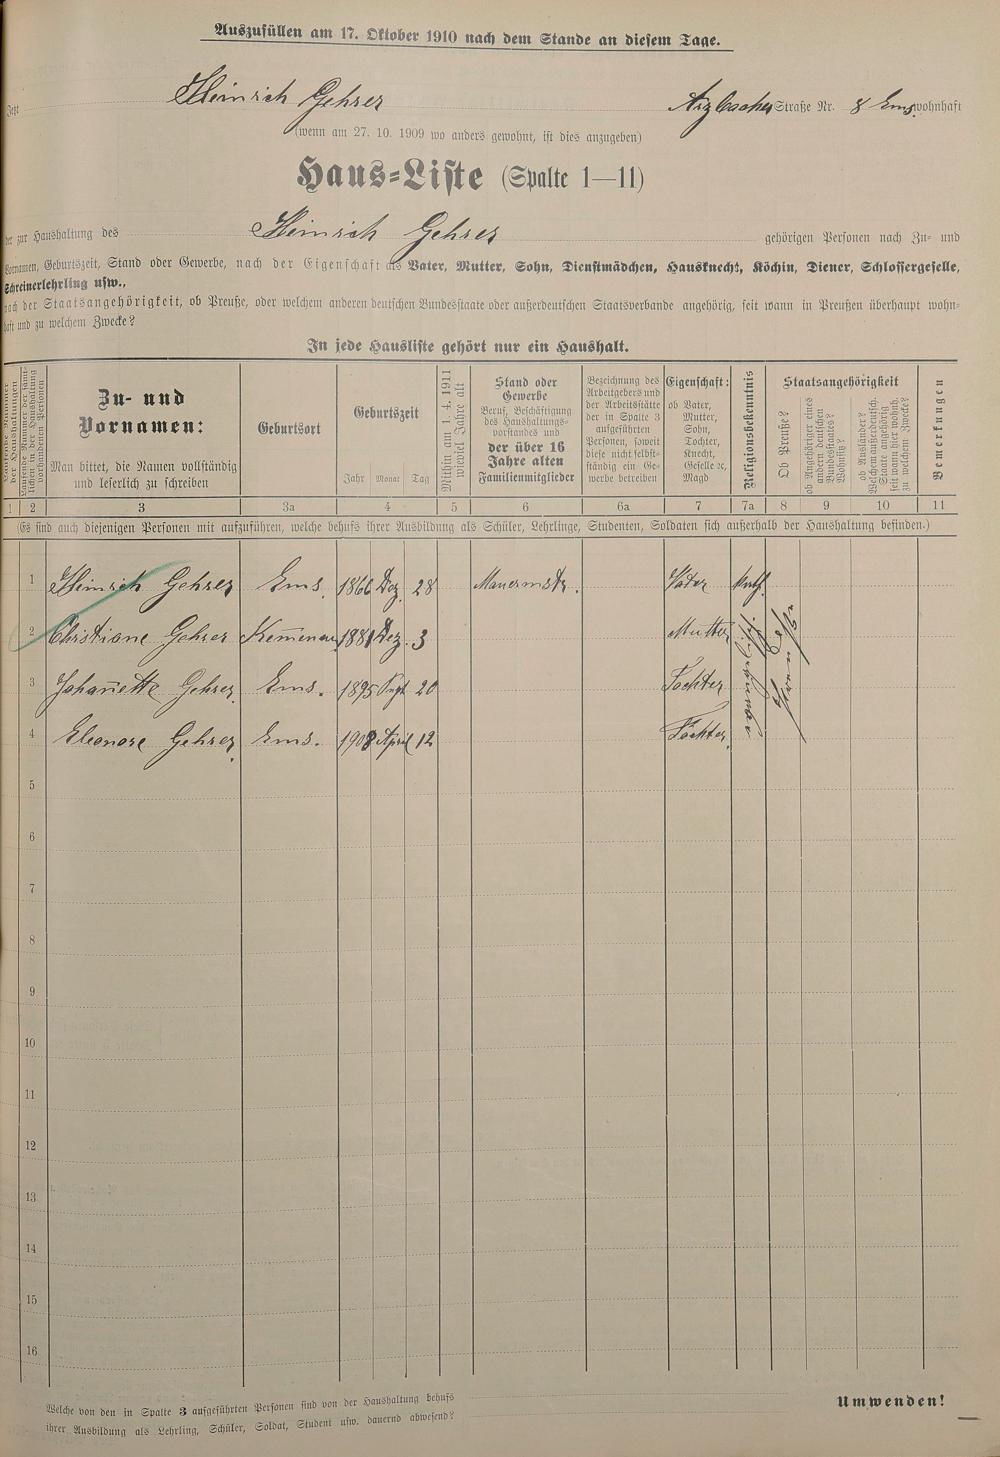 Auszufüllen am 17. Oktober 1910 nach dem Stande an diesem Tage.
Jetzt Heinrich Gehrer Arzbacher Straße Nr. 8 Ems. wohnhaft
(wenn am 27. 10. 1909 wo anders gewohnt, ist dies anzugeben)
Haus=Liste (Spalte 1—11)
der zur Haushaltung des Heinrich Gehrer gehörigen Personen nach Zu= und
Vornamen, Geburtszeit, Stand oder Gewerbe, nach der Eigenschaft als Vater, Mutter, Sohn, Dienstmädchen, Hausknecht, Köchin, Diener, Schlossergeselle,
Schreinerlehrling usw.,
nach der Staatsangehörigkeit, ob Preuße, oder welchem anderen deutschen Bundesstaate oder außerdeutschen Staatsverbande angehörig, seit wann in Preußen überhaupt wohn=
haft und zu welchem Zwecke?
In jede Hausliste gehört nur ein Haushalt.
Laufende Nummer der Haushaltungen
Laufende Nummer der sämt=
lichen in der Haushaltung
vorhandenen Personen
Zu= und
Vornamen:
Man bittet, die Namen vollständig
und leserlich zu schreiben
Geburtsort
Geburtszeit
Jahr Monat Tag
Mithin am 1. 4. 1911
wieviel Jahre alt
Stand oder
Gewerbe
Beruf, Beschäftigung
des Haushaltungs=
vorstandes und
der über 16
Jahre alten
Familienmitglieder
Bezeichnung des
Arbeitgebers und
der Arbeitsstätte
der in Spalte 3
aufgeführten
Personen, soweit
diese nicht selbst=
ständig ein Ge=
werbe betreiben
Eigenschaft:
ob Vater,
Mutter,
Sohn,
Tochter,
Knecht,
Geselle ꝛc,
Magd
Religionsbekenntnis
Staatsangehörigkeit
Ob Preuße?
ob Angehöriger eines
andern deutschen
Bundesstaates?
Wohnsitz?
ob Ausländer?
Welchem außerdeutsch.
Staate angehörig
seit wann hier wohnh.
zu welchem Zwecke?
Bemerkungen
1 2 3 3a 4 5 6 6a 7 7a 8 9 10 11
(Es sind auch diejenigen Personen mit aufzuführen, welche behufs ihrer Ausbildung als Schüler, Lehrlinge, Studenten, Soldaten sich außerhalb der Haushaltung befinden.)
1 Heinrich Gehrer Ems. 1866 Dez. 28 Maurermstr. Vater
2 Christiane Gehrer Kemenau 1881 Dez. 3 Mutter
3 Johan̄ette Gehrer Ems. 1895 Sept 20 Tochter
4 Eleonore Gehrer Ems. 1908 April 12 Tochter
5
6
7
8
9
10
11
12
13
14
15
16
Welche von den in Spalte 3 aufgeführten Personen sind von der Haushaltung behufs
ihrer Ausbildung als Lehrling, Schüler, Soldat, Student usw. dauernd abwesend?
Umwenden!